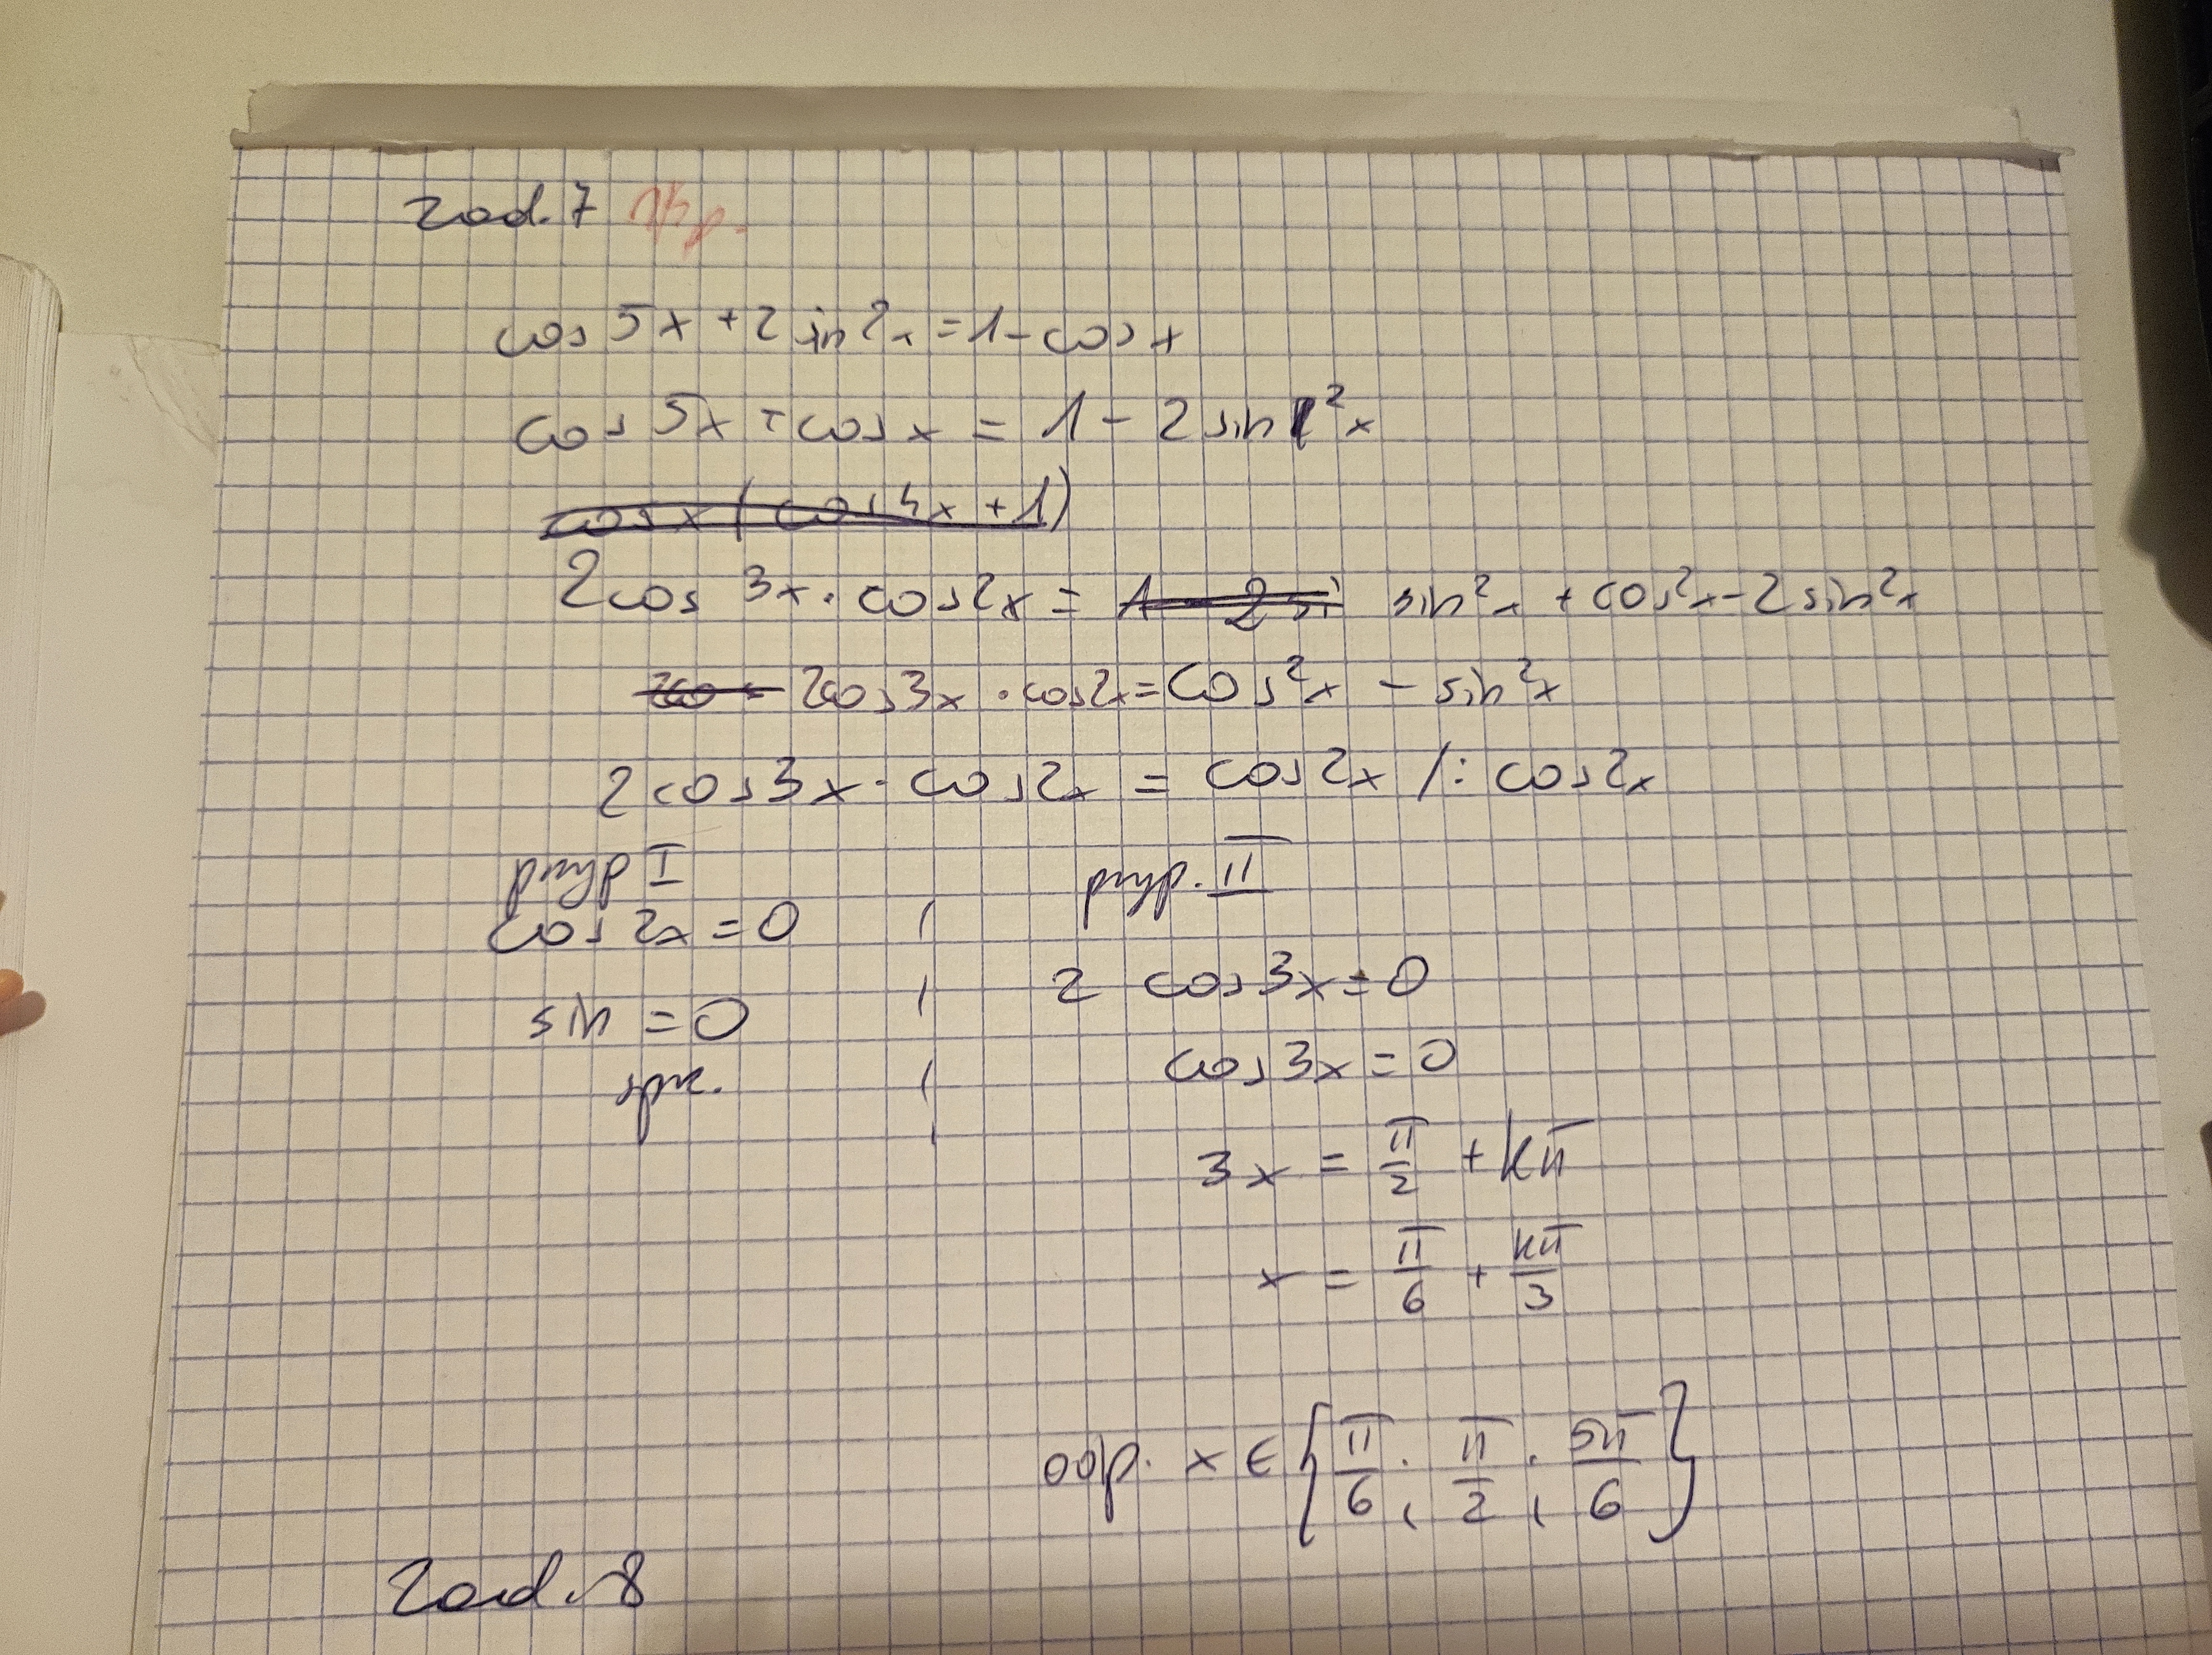 zad. 7
cos 5x + 2 sin²x = 1 - cos x
cos 5x + cos x = 1 - 2 sin²x
cos x (cos 4x + 1)
2 cos 3x · cos 2x = 1 - 2 si sin²x + cos²x - 2 sin²x
2cos 3x · cos 2x = cos²x - sin²x
2 cos 3x · cos 2x = cos 2x /: cos 2x
przyp I przyp. II
cos 2x = 0
2 cos 3x = 0
sin = 0
cos 3x = 0
sprz.
3x = π/2 + kπ
x = π/6 + kπ/3
odp. x ∈ {π/6 ; π/2 ; 5π/6}
zad. 8